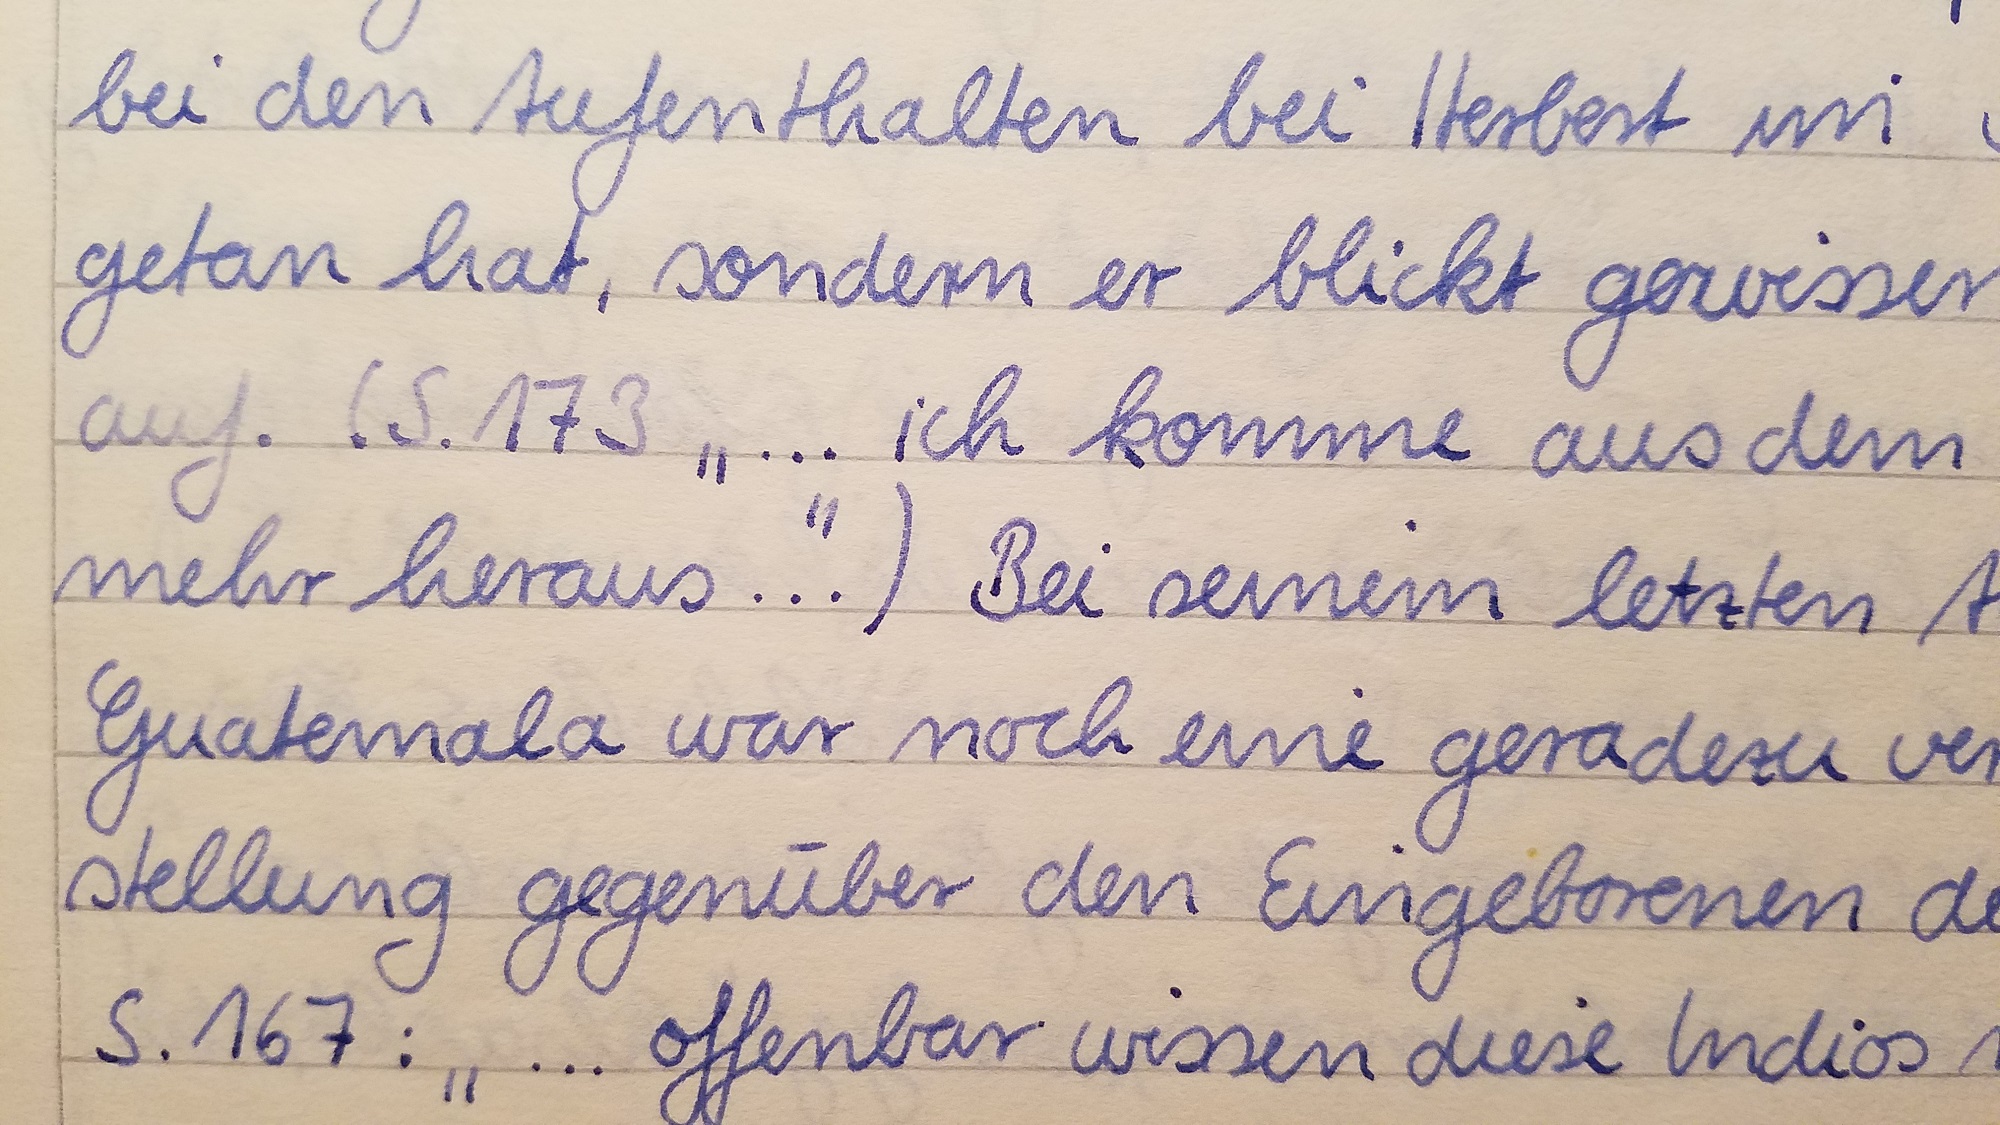 bei den Aufenthalten bei Herbert im
getan hat, sondern er blickt gewisser
auf. (S. 173 „... ich komme aus dem
mehr heraus...") Bei seinem letzten
Guatemala war noch eine geradezu ver
stellung gegenüber den Eingeborenen de
S. 167: „... offenbar wissen diese Indios